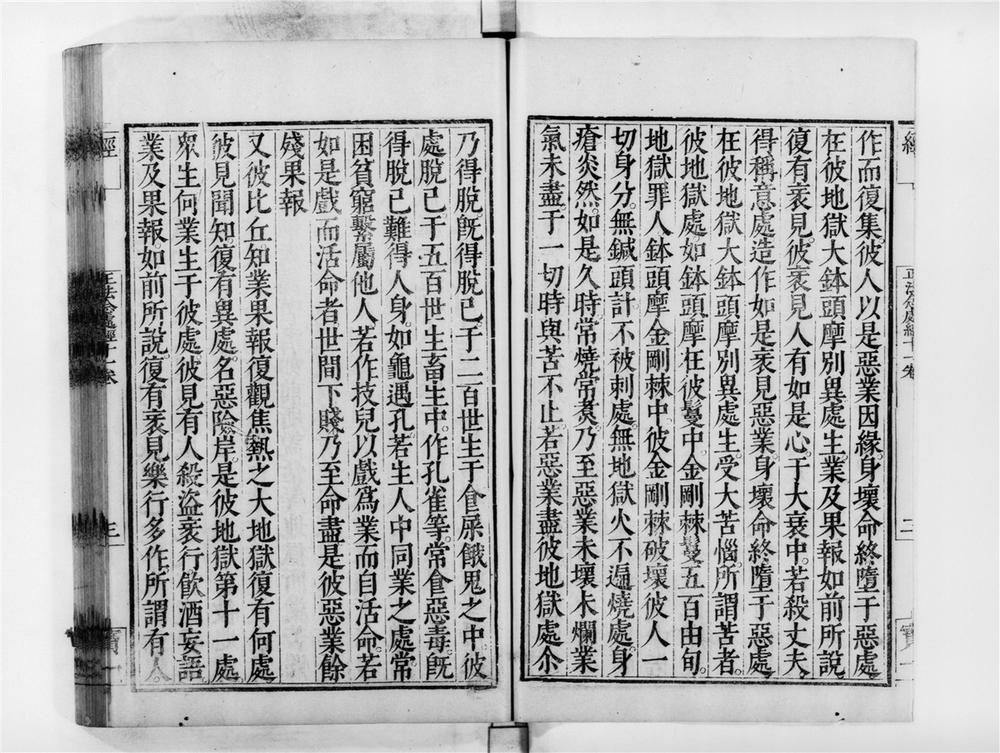 作而復集。彼人以是惡業因緣。身壞命終墮于惡處
在彼地獄大鉢頭摩別異處生。業及果報如前所說。
復有衺見。彼衺見人有如是心。于大衺中。若殺丈夫。
得稱意處。造作如是衺見惡業。身壞命終墮于惡處
在彼地獄大鉢頭摩別異處生。受大苦惱。所謂苦者。
彼地獄處如鉢頭摩。在彼鬘中。金剛棘鬘五百由旬。
地獄罪人鉢頭摩金剛棘中。彼金剛棘破壞彼人一
切身分。無鍼頭計不被刺處。無地獄火不遍燒處。身
瘡炎然。如是久時常燒常煑。乃至惡業未壞未爛業
氣未盡于一切時與苦不止。若惡業盡彼地獄處尒
經
正法念處經十一卷
二
寶
乃得脫。旣得脫已。于二百世生于食屎餓鬼之中。彼
處脫已于五百世生畜生中。作孔雀等。常食惡毒。旣
得脫已難得人身。如龜遇孔若生人中同業之處常
困貧窮。繫屬他人若作技兒以戲爲業而自活命。若
如是戲而活命者世間下賤乃至命盡是彼惡業餘
殘果報
又彼比丘知業果報復觀焦熱之大地獄復有何處
彼見聞知。復有異處。名惡險岸是彼地獄第十一處
眾生何業生于彼處。彼見有人殺盜衺行飲酒妄語
業及果報。如前所說。復有衺見樂行多作所謂有人。
經
正法念處經十一卷
三
寶